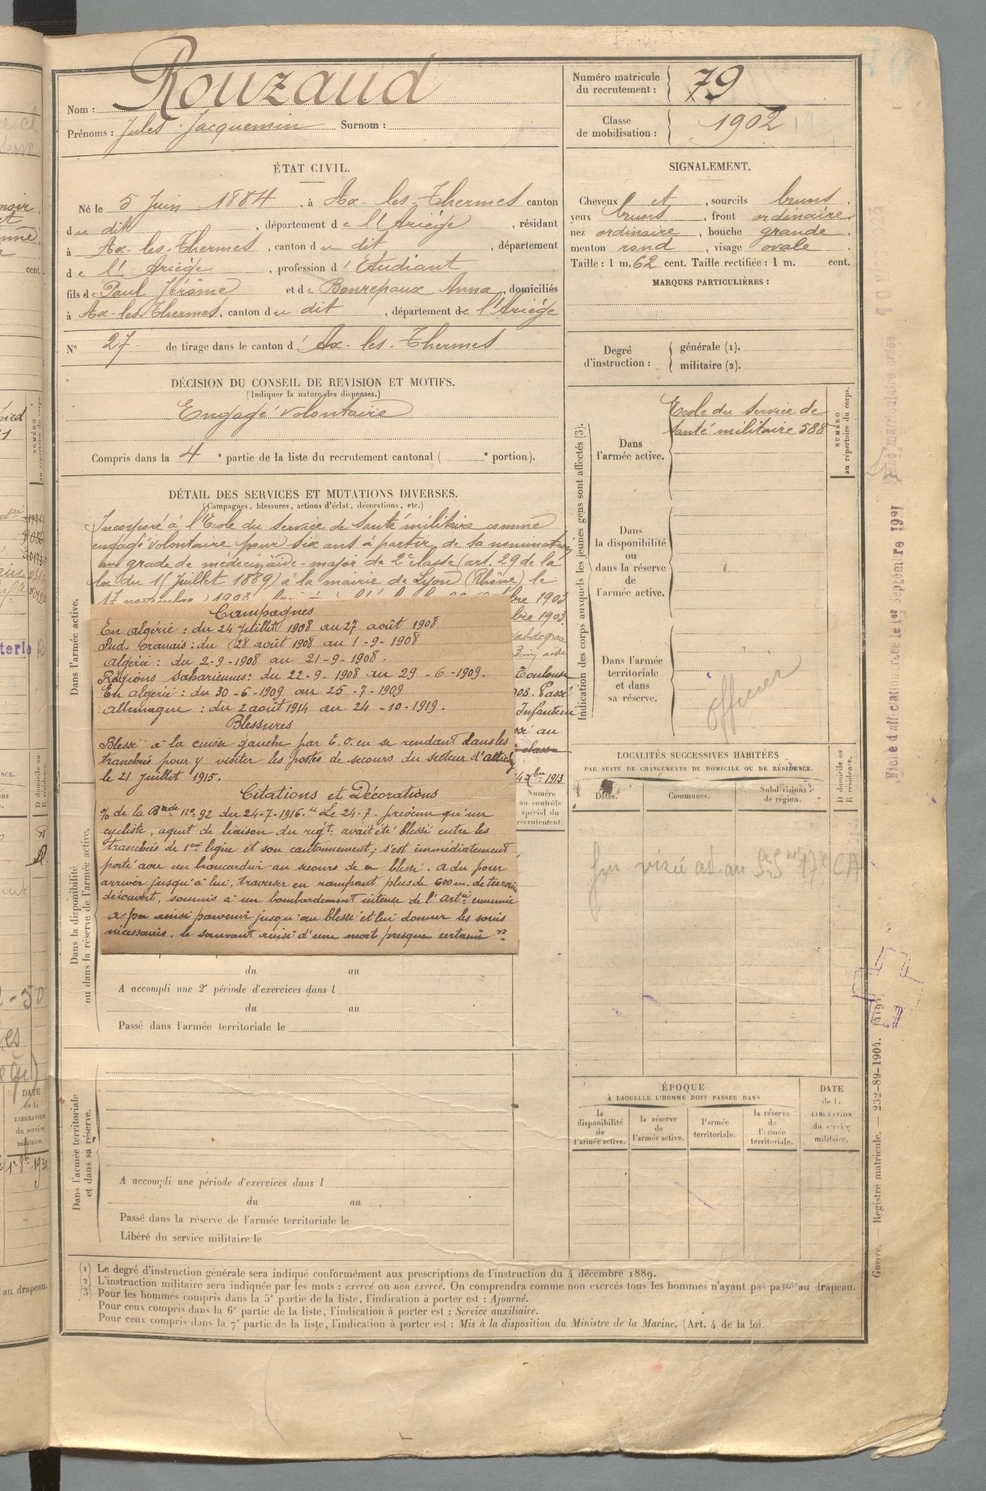 Nom : Rouzaud
Prénoms : Jules Jacquemin Surnom :
Numéro matricule
du recrutement : 79
Classe
de mobilisation : 1902
ÉTAT CIVIL.
Né le 5 Juin 1884, à Ax-les-Thermes canton
du dit, département de l'Ariège, résidant
à Ax-les-Thermes, canton du dit, département
de l'Ariège, profession d'Etudiant
fils de Paul Jérôme et de Bonrepaux Anna, domiciliés
à Ax-les-Thermes, canton du dit, département de l'Ariège
N° 27 de tirage dans le canton d'Ax-les-Thermes
SIGNALEMENT.
Cheveux et, sourcils bruns
yeux bruns, front ordinaire
nez ordinaire, bouche grande
menton rond, visage ovale
Taille : 1 m. 62 cent. Taille rectifiée : 1 m. cent.
MARQUES PARTICULIÈRES :
Degré
d'instruction :
générale (1).
militaire (2).
DÉCISION DU CONSEIL DE REVISION ET MOTIFS.
(Indiquer la nature des dispenses.)
Engagé volontaire
Compris dans la 4e partie de la liste du recrutement cantonal ( e portion).
DÉTAIL DES SERVICES ET MUTATIONS DIVERSES.
(Campagnes, blessures, actions d'éclat, décorations, etc.)
Incorporé à l'Ecole du Service de Santé militaire comme
engagé volontaire pour six ans à partir de sa nomination
au grade de médecin aide-major de 2e classe (art. 29 de la
loi du 15 Juillet 1889) à la mairie de Lyon (Rhône) le
17 novembre 1903
1903
1903
Toulouse
Passé
Infanterie
au
1913
Campagnes
En Algérie : du 24 juillet 1908 au 27 août 1908
Sud. Oranais : du 28 août 1908 au 1-9-1908
Algérie : du 2-9-1908 au 21-9-1908.
Régions Sahariennes : du 22-9-1908 au 29-6-1909.
En Algérie : du 30-6-1909 au 25-7-1909
Allemagne : du 2 août 1914 au 24-10-1919.
Blessures
Blessé à la cuisse gauche par E.O. en se rendant dans les
tranchées pour y visiter les postes de secours du secteur d'
le 21 juillet 1915.
Citations et Décorations
O/ de la Bde no 92 du 24-7-1916. "Le 24-7- prévenu qu'un
cycliste, agent de liaison du regt. avait été blessé entre les
tranchées de 1ere ligne et son cantonnement, s'est immédiatement
porté avec un brancardier au secours de ce blessé. A du pour
arriver jusqu'à lui, traverser en rampant plus de 600 m. de terrain
découvert, soumis à un bombardement intense de l'Artie ennemie
a pu ainsi parvenir jusqu'au blessé et lui donner les soins
nécessaires, le sauvant ainsi d'une mort presque certaine"
Numéro
au contrôle
spécial du
recrutement.
Dans l'armée active.
Dans la disponibilité
ou dans la réserve de l'armée active.
du au
A accompli une 2e période d'exercices dans l
du au
Passé dans l'armée territoriale le
Dans l'armée territoriale
et dans sa réserve.
A accompli une période d'exercices dans l
du au
Passé dans la réserve de l'armée territoriale le
Libéré du service militaire le
Indication des corps auxquels les jeunes gens sont affectés (3).
Dans
l'armée active.
Ecole du Service de
Santé militaire 588
NUMÉRO
au répertoire du corps.
Dans
la disponibilité
ou
dans la réserve
de
l'armée active.
Dans l'armée
territoriale
et dans
sa réserve.
officier
LOCALITÉS SUCCESSIVES HABITÉES
PAR SUITE DE CHANGEMENTS DE DOMICILE OU DE RÉSIDENCE.
Dates.
Communes.
Subdivisions
de région.
D domicile ou
R résidence.
ÉPOQUE
À LAQUELLE L'HOMME DOIT PASSER DANS
la
disponibilité
de
l'armée active.
la réserve
de
l'armée active.
l'armée
territoriale.
la réserve
de
l'armée
territoriale.
DATE
de la
LIBÉRATION
du service
militaire.
Guerre. Registre matricule. — 232-89-1904.
(1) Le degré d'instruction générale sera indiqué conformément aux prescriptions de l'instruction du 4 décembre 1889.
(2) L'instruction militaire sera indiquée par les mots : exercé ou non exercé. On comprendra comme non exercés tous les hommes n'ayant pas passé au drapeau.
(3) Pour les hommes compris dans la 5e partie de la liste, l'indication à porter est : Ajourné.
Pour ceux compris dans la 6e partie de la liste, l'indication à porter est : Service auxiliaire.
Pour ceux compris dans la 7e partie de la liste, l'indication à porter est : Mis à la disposition du Ministre de la Marine. (Art. 4 de la loi